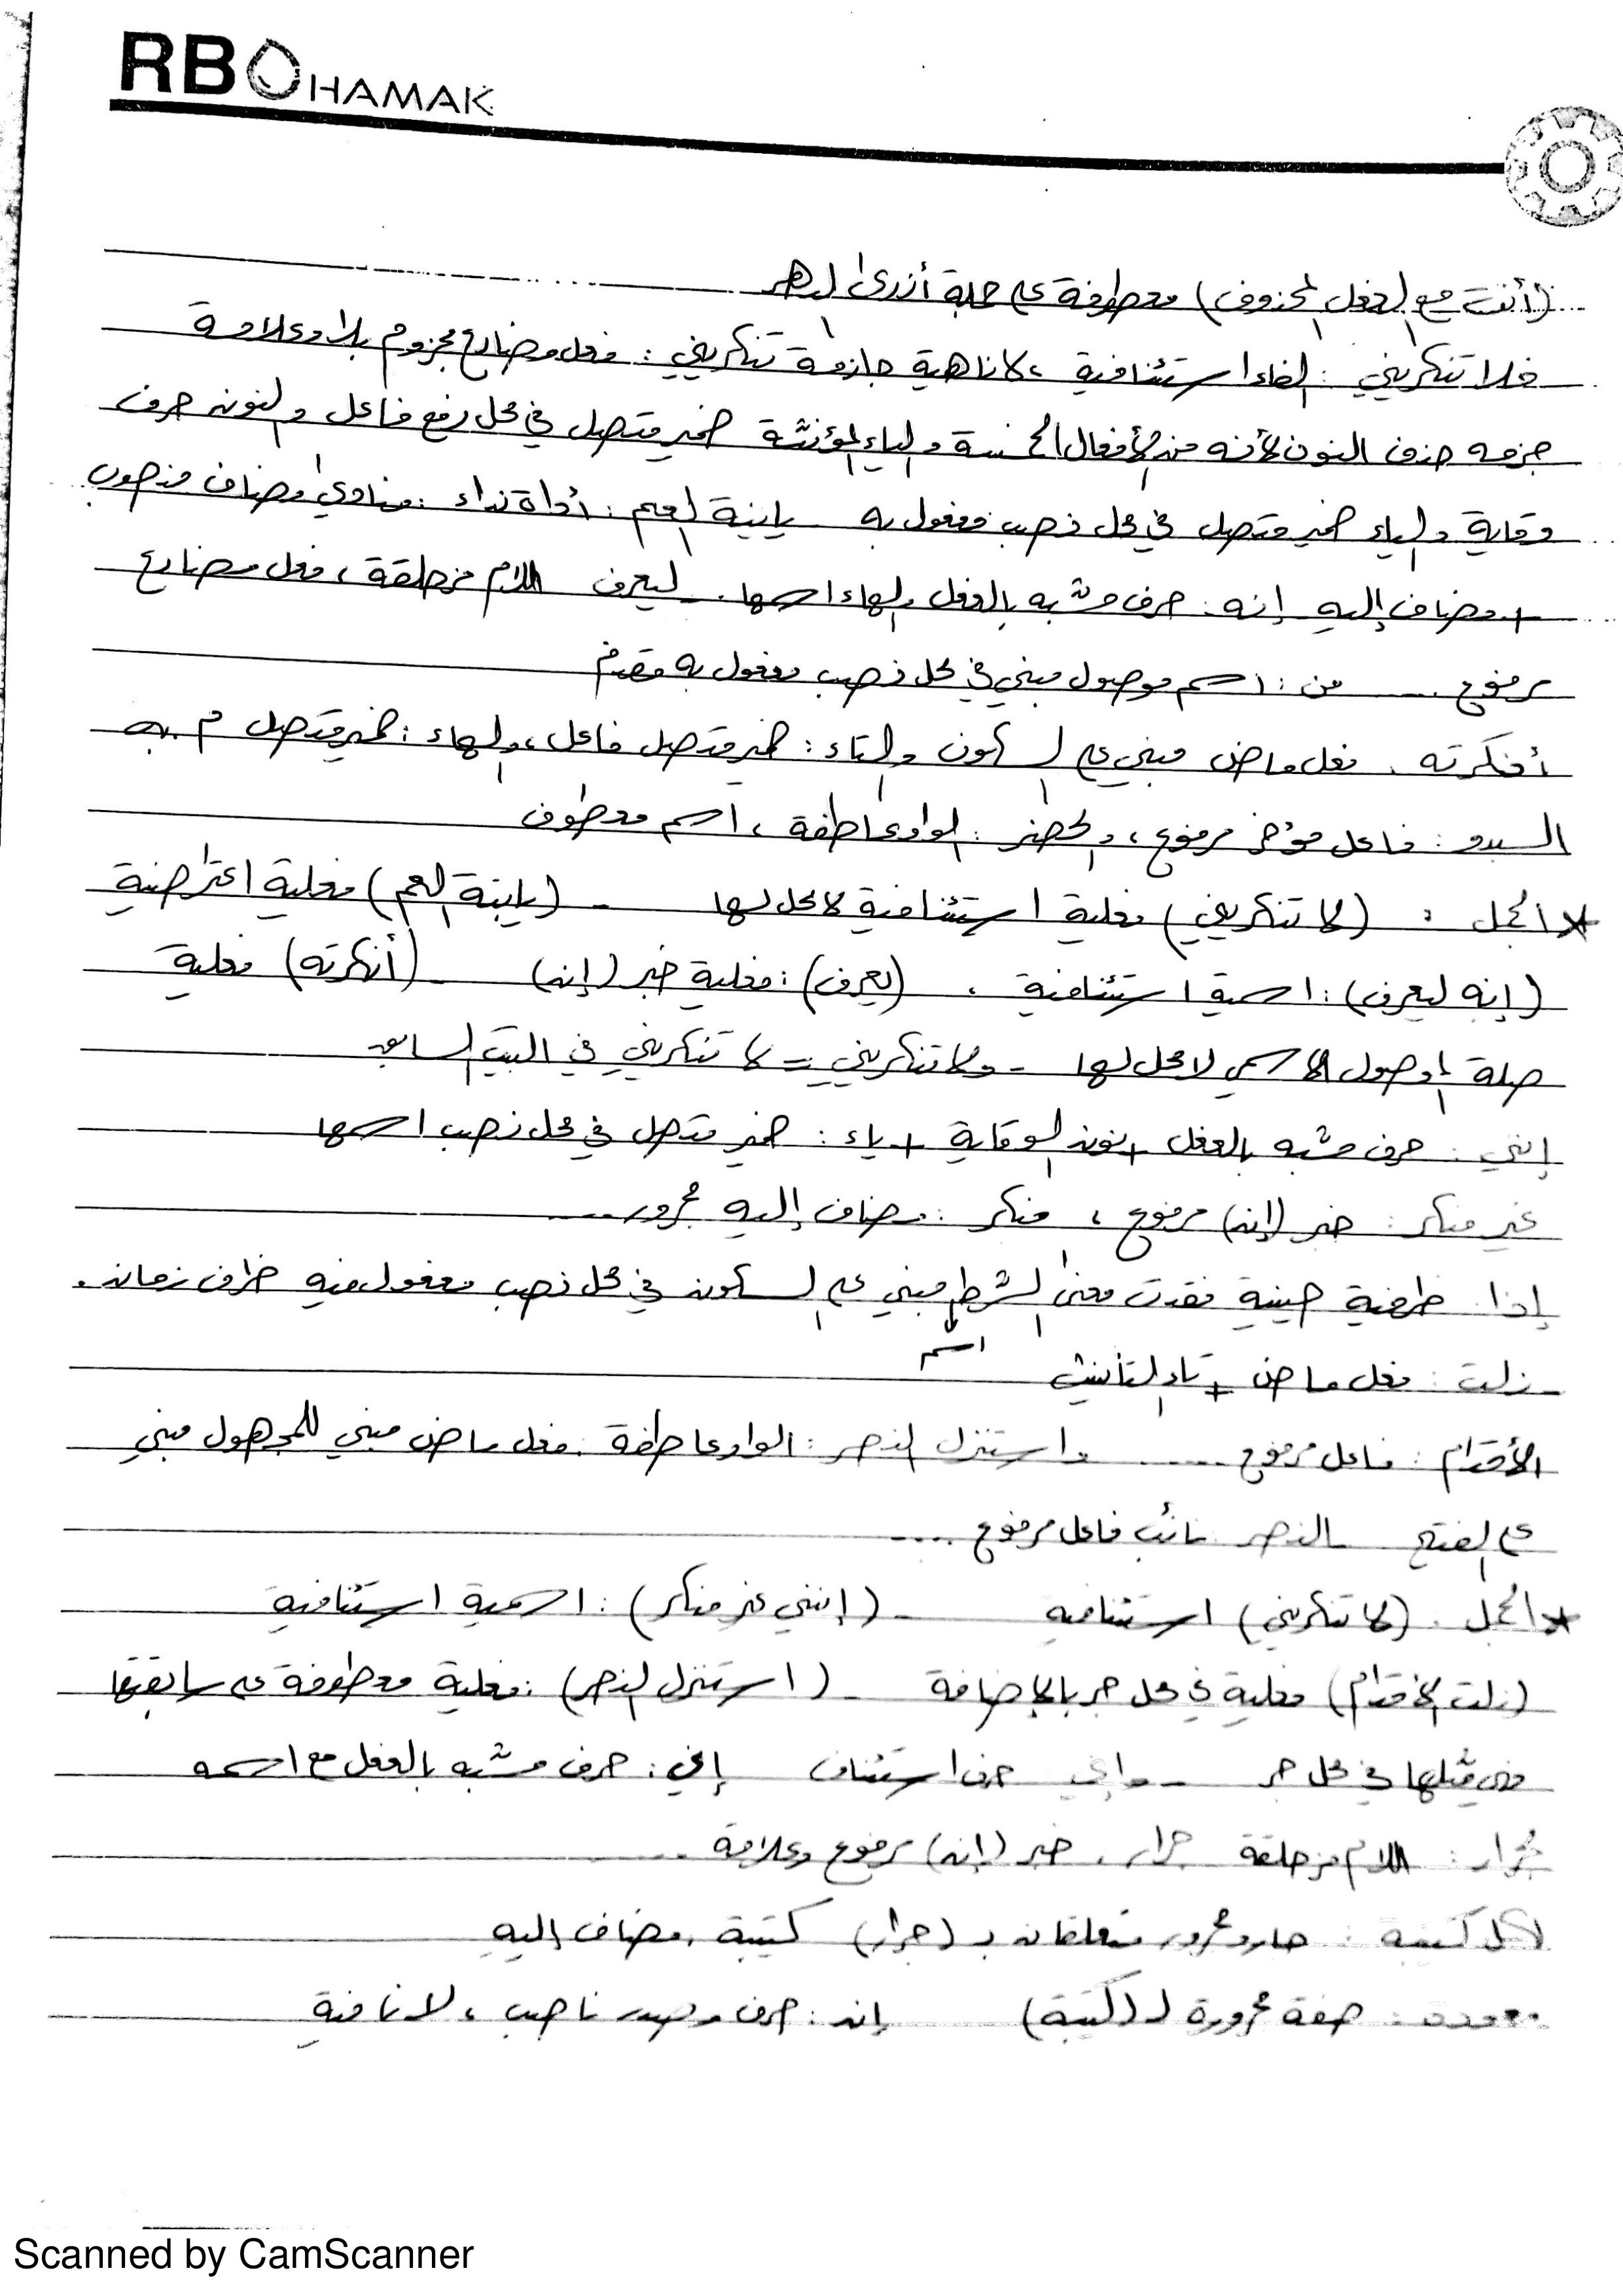 RB HAMAK
(أنت مع الفعل المحذوف) معطوفة على جملة أزرى الدهر
فلا تنكريني : الفاء استئنافية ، لا ناهية جازمة تنكريني : فعل مضارع مجزوم بلا وعلامة
جزمه حذف النون لأنه من الأفعال الخمسة والياء المؤنثة ضمير متصل في محل رفع فاعل والنون حرف
وقاية والياء ضمير متصل في محل نصب مفعول به - يا بنة العم : أداة نداء : منادى مضاف منصوب
+ مضاف إليه إنه : حرف مشبه بالفعل والهاء اسمها . ليعرف اللام مزحلقة ، فعل مضارع
مرفوع .... من : اسم موصول مبني في محل نصب مفعول به مقدم
أنكرته . فعل ماض مبني على السكون والتاء : ضمير متصل فاعل ، والهاء : ضمير متصل م . به
البدو : فاعل مؤخر مرفوع ، والحضر : الواو عاطفة ، اسم معطوف
* الجمل : (لا تنكريني) فعلية استئنافية لا محل لها - (يا بنة العم) فعلية اعتراضية
(إنه ليعرف) : اسمية استئنافية . (يعرف) : فعلية خبر (إنه) - (أنكرته) فعلية
صلة الموصول الاسمي لا محل لها - ولا تنكريني = لا تنكريني في البيت السابع
إنني : حرف مشبه بالفعل + نون الوقاية + ياء : ضمير متصل في محل نصب اسمها
غير منكر : خبر (إنه) مرفوع ، منكر : مضاف إليه مجرور ....
إذا . ظرفية حينية فقدت معنى الشرط مبني على السكون في محل نصب مفعول فيه ظرف زمان .
اسم
- زلت : فعل ماض + تاء التأنيث
الأقدام : فاعل مرفوع .... واستنزل النصر : الواو عاطفة . فعل ماض مبني للمجهول مبني
على الفتح - النصر نائب فاعل مرفوع ....
* الجمل . (لا تنكريني) استئنافيه - (إنني غير منكر) : اسمية استئنافية
(زلت الأقدام) فعلية في محل جر بالإضافة - (استنزل النصر) : فعلية معطوفة على سابقتها
فهي مثلها في محل جر - وإني حرف استئناف إني : حرف مشبه بالفعل مع اسمه
لجرار : اللام مزحلقة جرار . خبر (إنه) مرفوع وعلامة ...
لكل كتيبة : جار ومجرور متعلقان بـ (جرار) كتيبة . مضاف إليه
معودة : صفة مجرورة لـ (كتيبة) إن : حرف مصدر ناصب ، لا نافية
Scanned by CamScanner